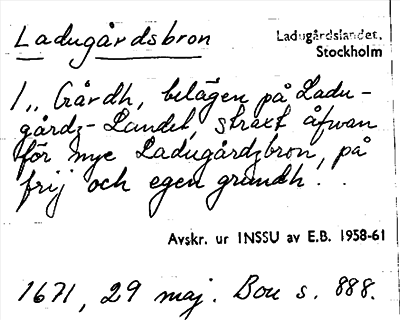 Ladugårdsbron
Ladugårdslandet,
Stockholm
1,, Gårdh, belägen på Ladu-
gårdz-Landet, straxt åfwan
för nye Ladugårdzbron, på
frij och egen grundh...
Avskr. ur INSSU av E.B. 1958-61
1671, 29 maj. Bou s. 888.